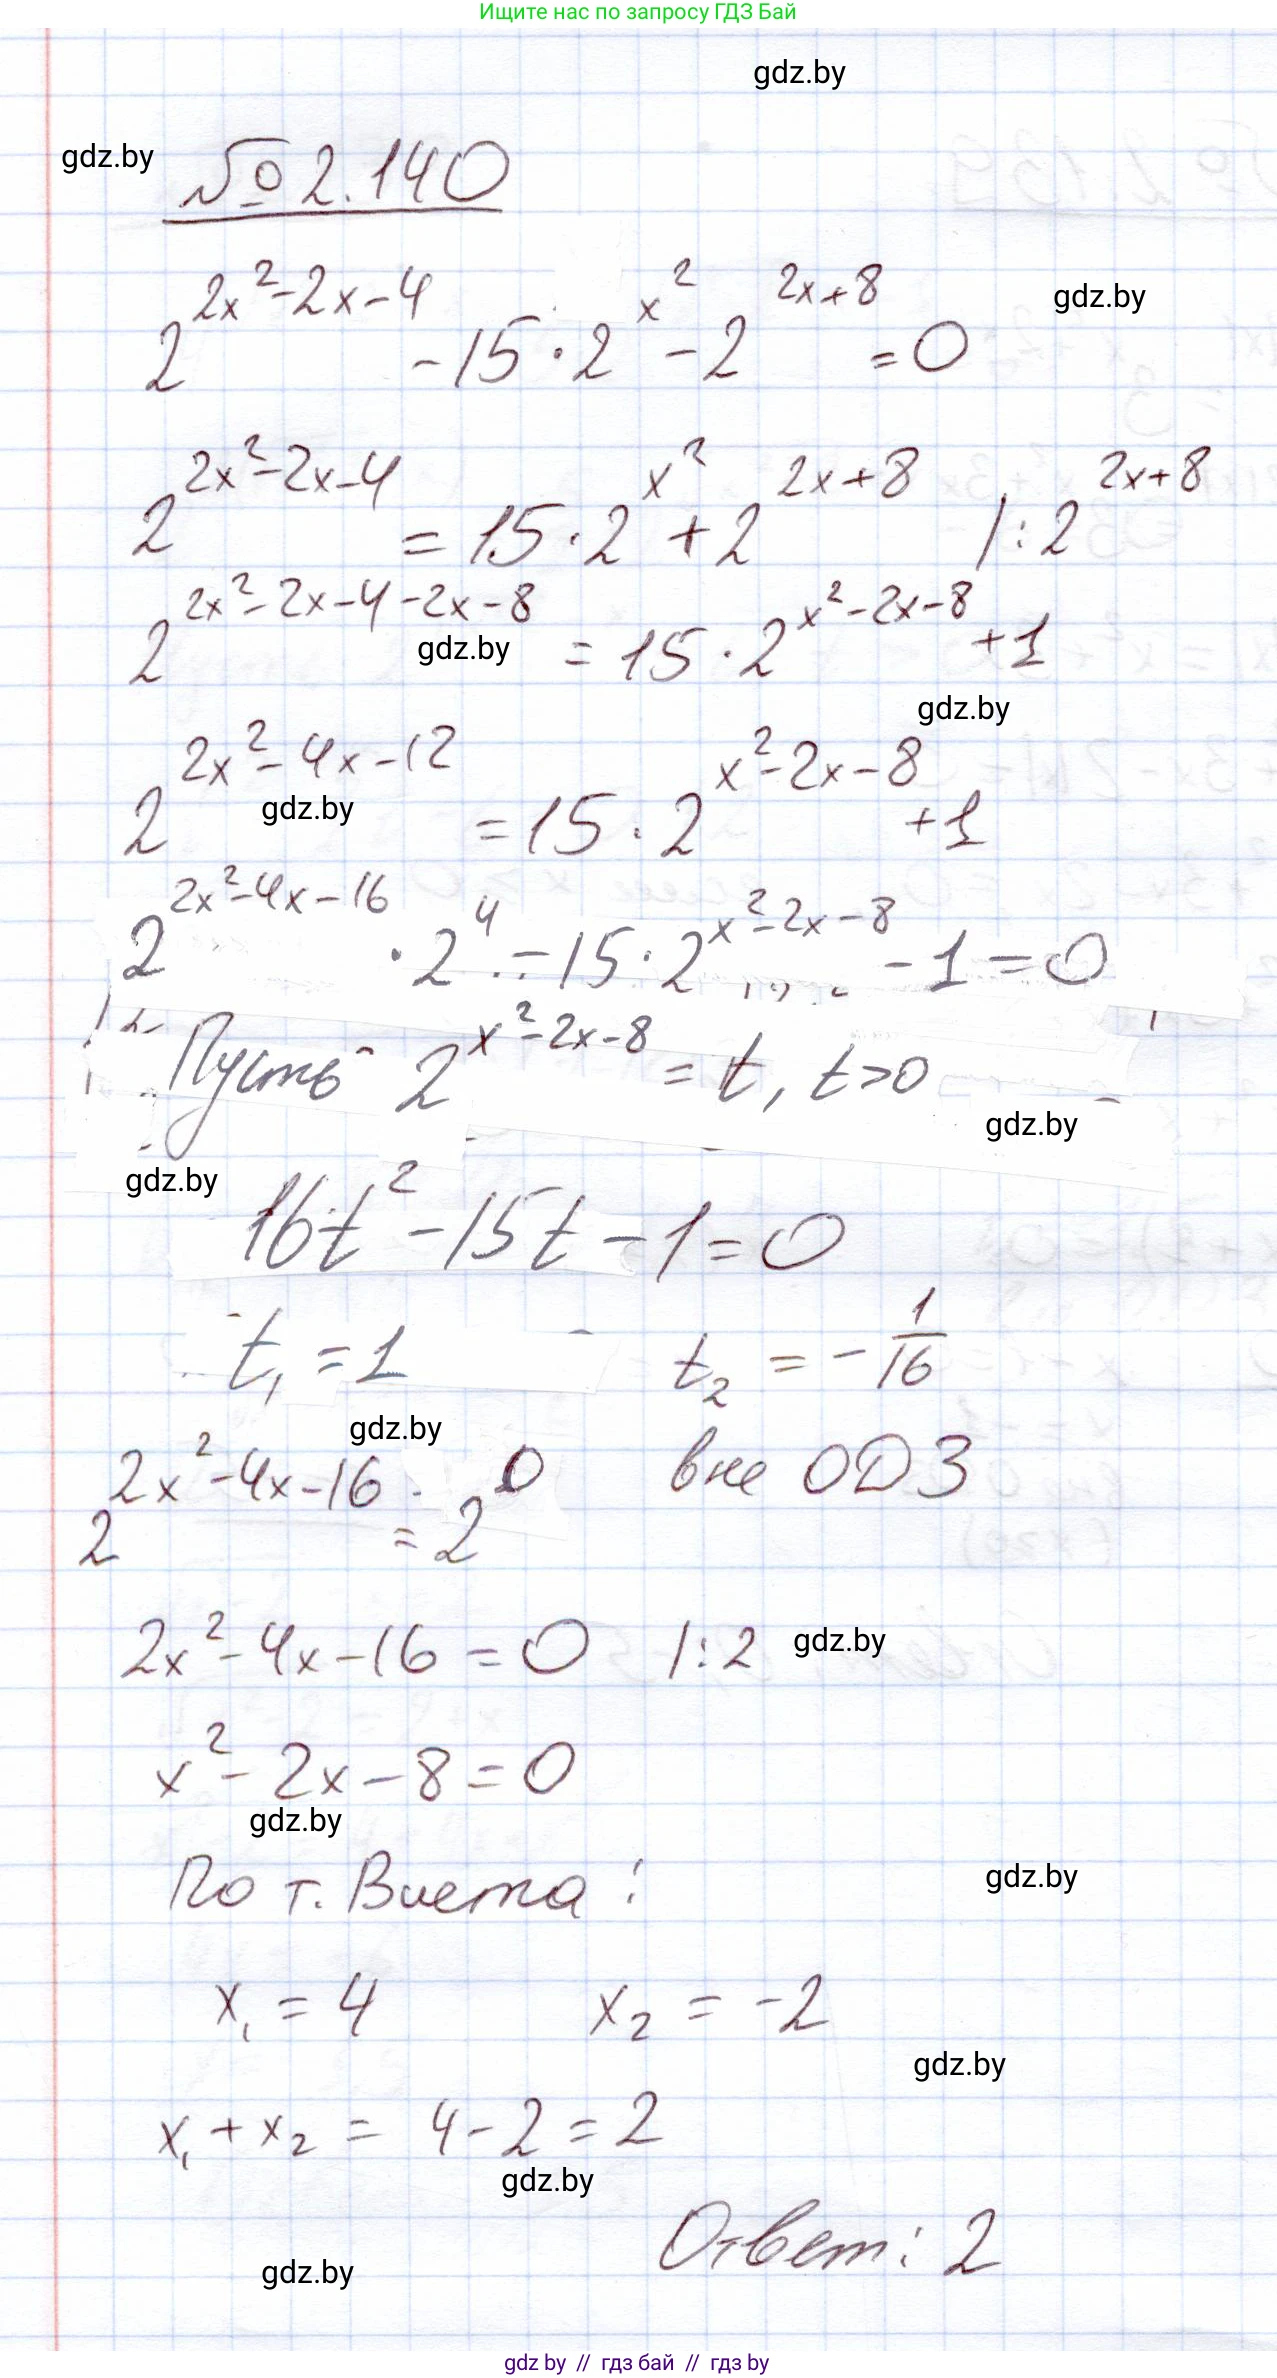 Ищите нас по запросу ГДЗ Бай
gdz.by
gdz.by
№ 2.140
2^{2x²-2x-4} - 15 · 2^{x²} - 2^{2x+8} = 0
gdz.by
2^{2x²-2x-4} = 15 · 2^{x²} + 2^{2x+8} /: 2^{2x+8}
2^{2x²-2x-4-2x-8} = 15 · 2^{x²-2x-8} + 1
gdz.by
gdz.by
2^{2x²-4x-12} = 15 · 2^{x²-2x-8} + 1
gdz.by
2^{2x²-4x-16} · 2⁴ - 15 · 2^{x²-2x-8} - 1 = 0
Пусть 2^{x²-2x-8} = t, t>0
gdz.by
gdz.by
16t² - 15t - 1 = 0
t₁ = 1 t₂ = -1/16
gdz.by
2^{2x²-4x-16} = 2⁰ вне ОДЗ
2x² - 4x - 16 = 0 /:2
gdz.by
x² - 2x - 8 = 0
gdz.by
По т. Виета:
gdz.by
x₁ = 4 x₂ = -2
gdz.by
x₁ + x₂ = 4 - 2 = 2
gdz.by
Ответ: 2
gdz.by
gdz by // гдз бай // gdz by